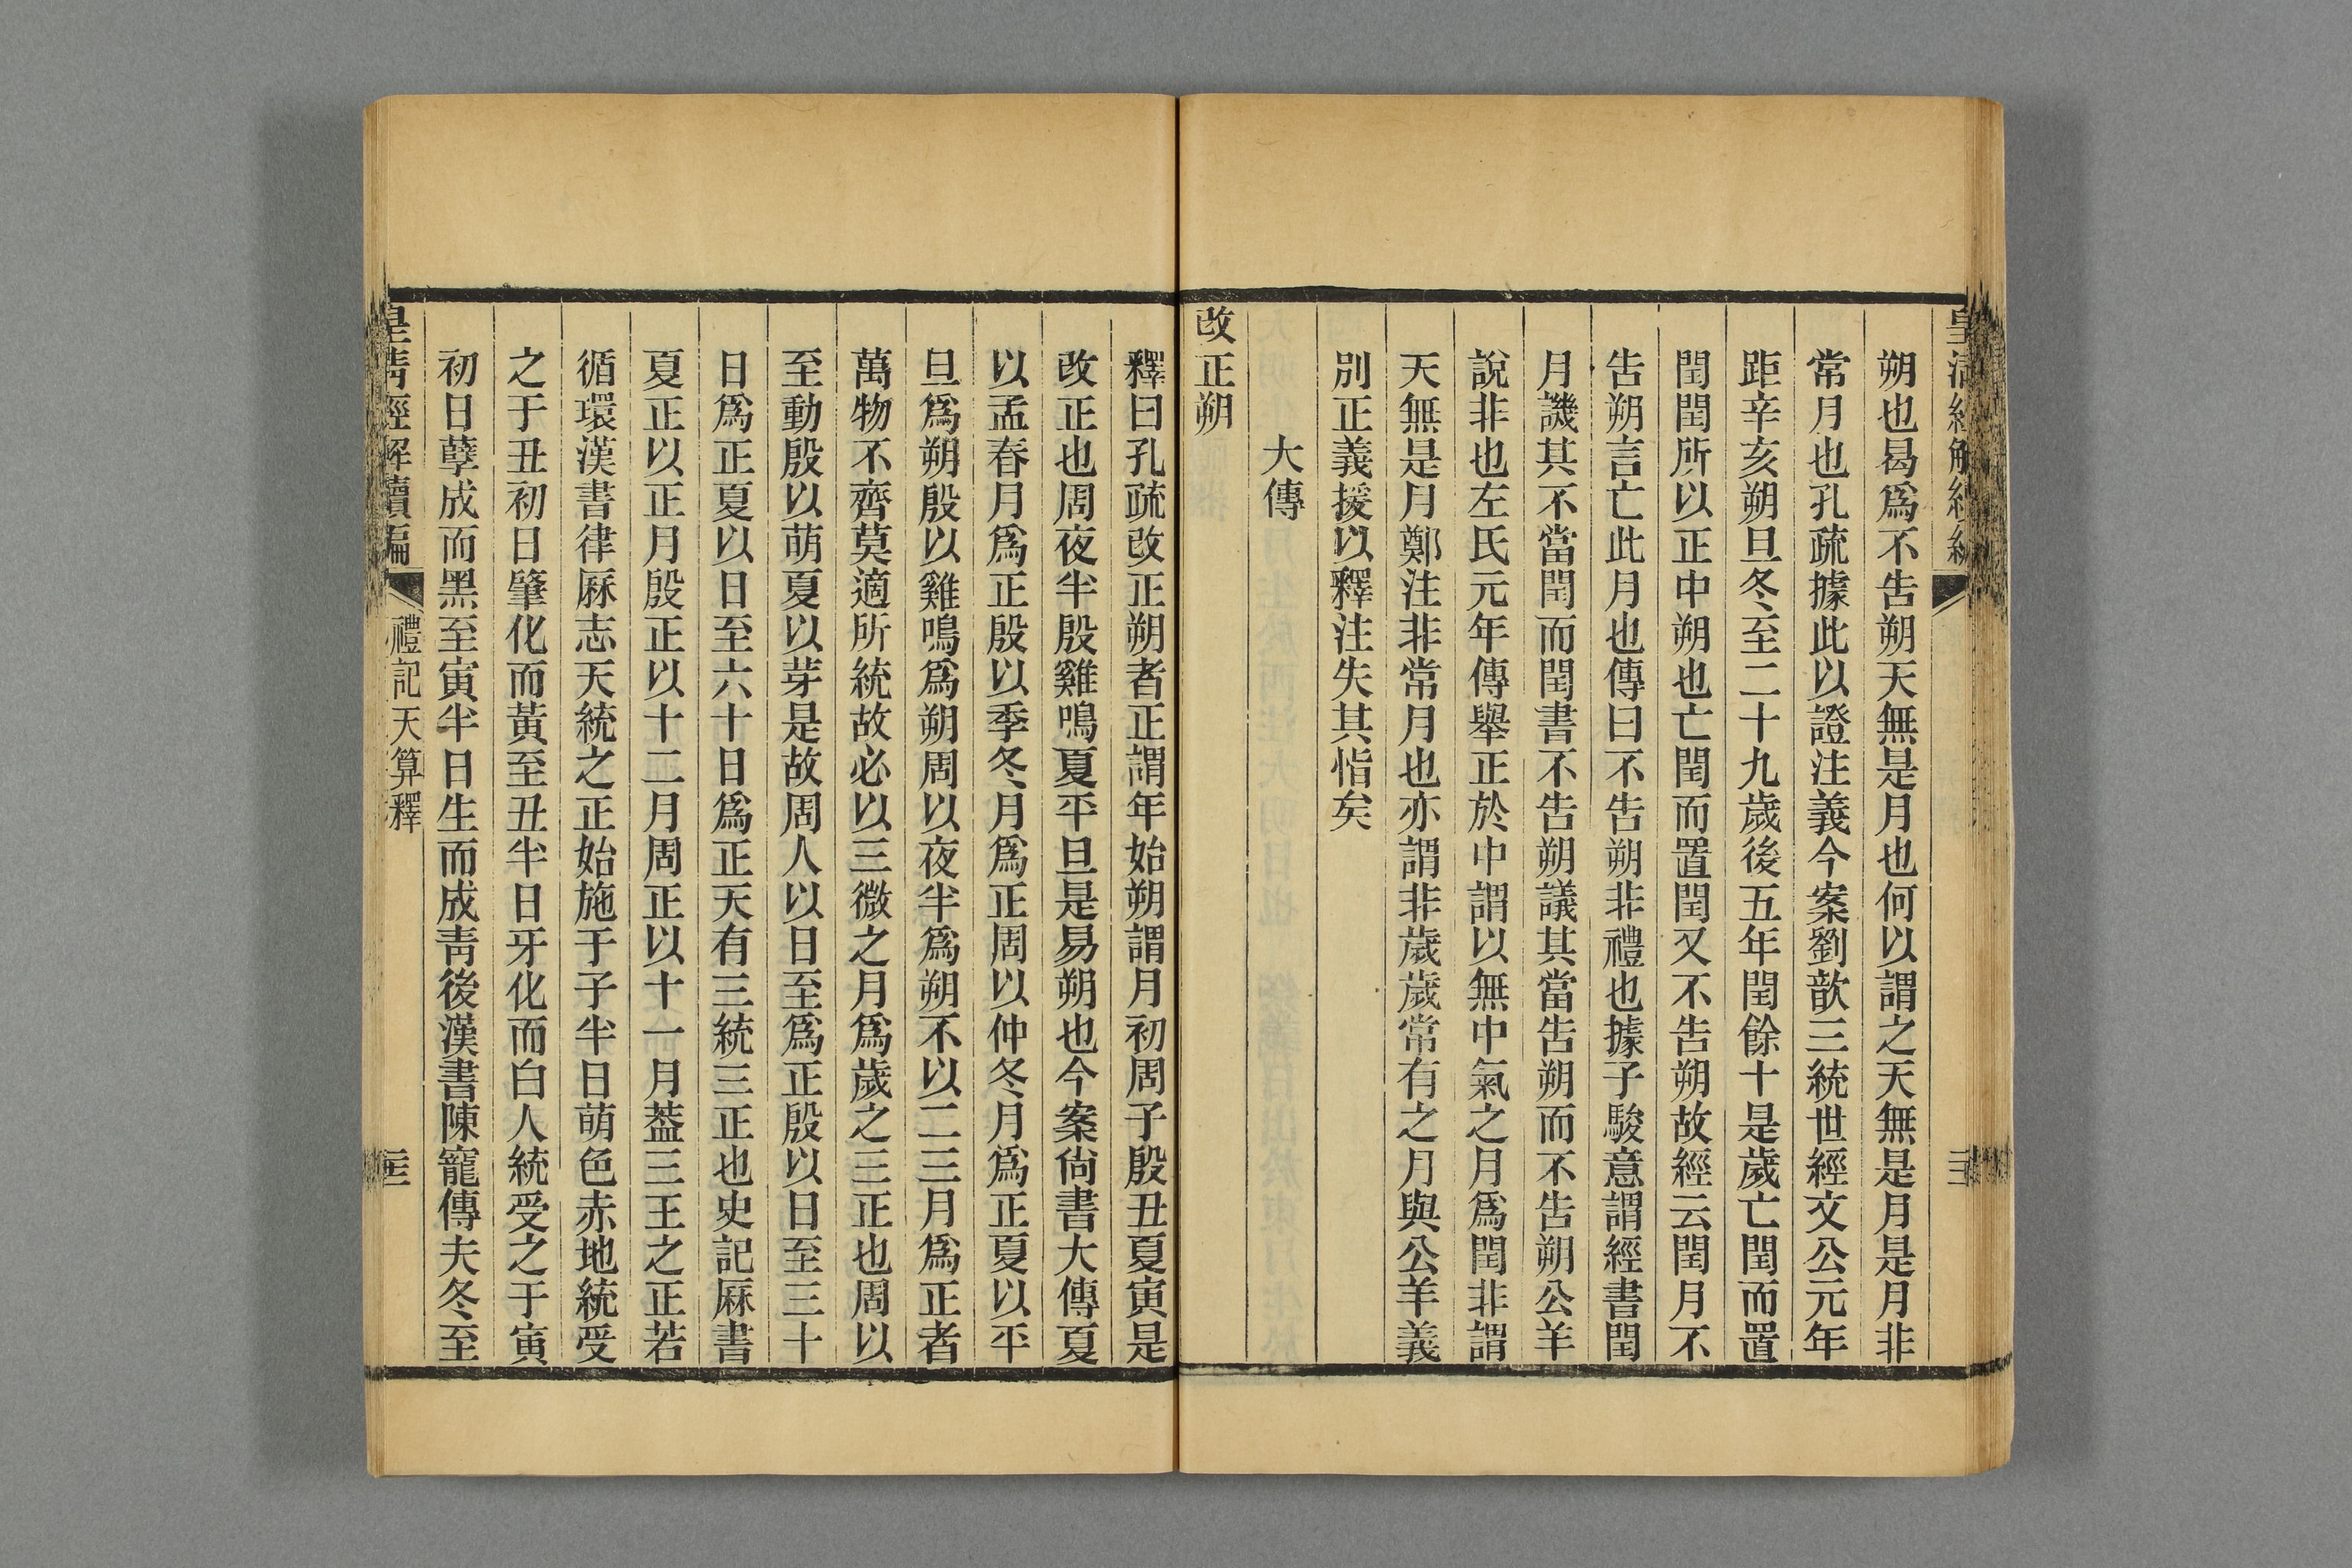 朔也曷爲不告朔天無是月也何以謂之天無是月是月非
常月也孔疏據此以證注義今案劉歆三統世經文公元年
距辛亥朔旦冬至二十九歲後五年閏餘十是歲亡閏而置
閏閏所以正中朔也亡閏而置閏又不告朔故經云閏月不
告朔言亡此月也傳曰不告朔非禮也據子駿意謂經書閏
月譏其不當閏而閏書不告朔議其當告朔而不告朔公羊
說非也左氏元年傳舉正於中謂以無中氣之月爲閏非謂
天無是月鄭注非常月也亦謂非歲歲常有之月與公羊義
別正義援以釋注失其恉矣
大傳
改正朔
釋曰孔疏改正朔者正謂年始朔謂月初周子殷丑夏寅是
改正也周夜半殷雞鳴夏平旦是易朔也今案尙書大傳夏
以孟春月爲正殷以季冬月爲正周以仲冬月爲正夏以平
旦爲朔殷以雞鳴爲朔周以夜半爲朔不以二三月爲正者
萬物不齊莫適所統故必以三微之月爲歲之三正也周以
至動殷以萌夏以芽是故周人以日至爲正殷以日至三十
日爲正夏以日至六十日爲正天有三統三正也史記厤書
夏正以正月殷正以十二月周正以十一月葢三王之正若
循環漢書律厤志天統之正始施于子半日萌色赤地統受
之于丑初日肇化而黃至丑半日牙化而白人統受之于寅
初日孽成而黑至寅半日生而成靑後漢書陳寵傳夫冬至
皇清經解續編
禮記天算釋